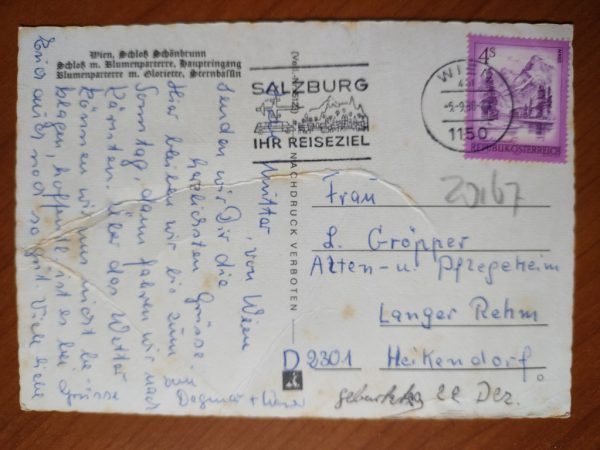 Wien, Schloß Schönbrunn
Schloß m. Blumenparterre, Haupteingang
Blumenparterre m. Gloriette, Sternbassin
Mutter, von Wien
senden wir Dir die
herzlichsten Grüsse.
Hier bleiben wir bis zum
Sonntag, dann fahren wir nach
Kärnten. Über das Wetter
können wir uns nicht be-
klagen, hoffentl. ist es bei
Euch auch noch so gut. Viele liebe
Grüsse
Dagmar +
NACHDRUCK VERBOTEN
SALZBURG
IHR REISEZIEL
WIEN
1150
4S
REPUBLIK ÖSTERREICH
20167
Frau
L. Gröpper
Alten- u. Pflegeheim
Langer Rehm
D 2301 Heikendorf
22 Dez.